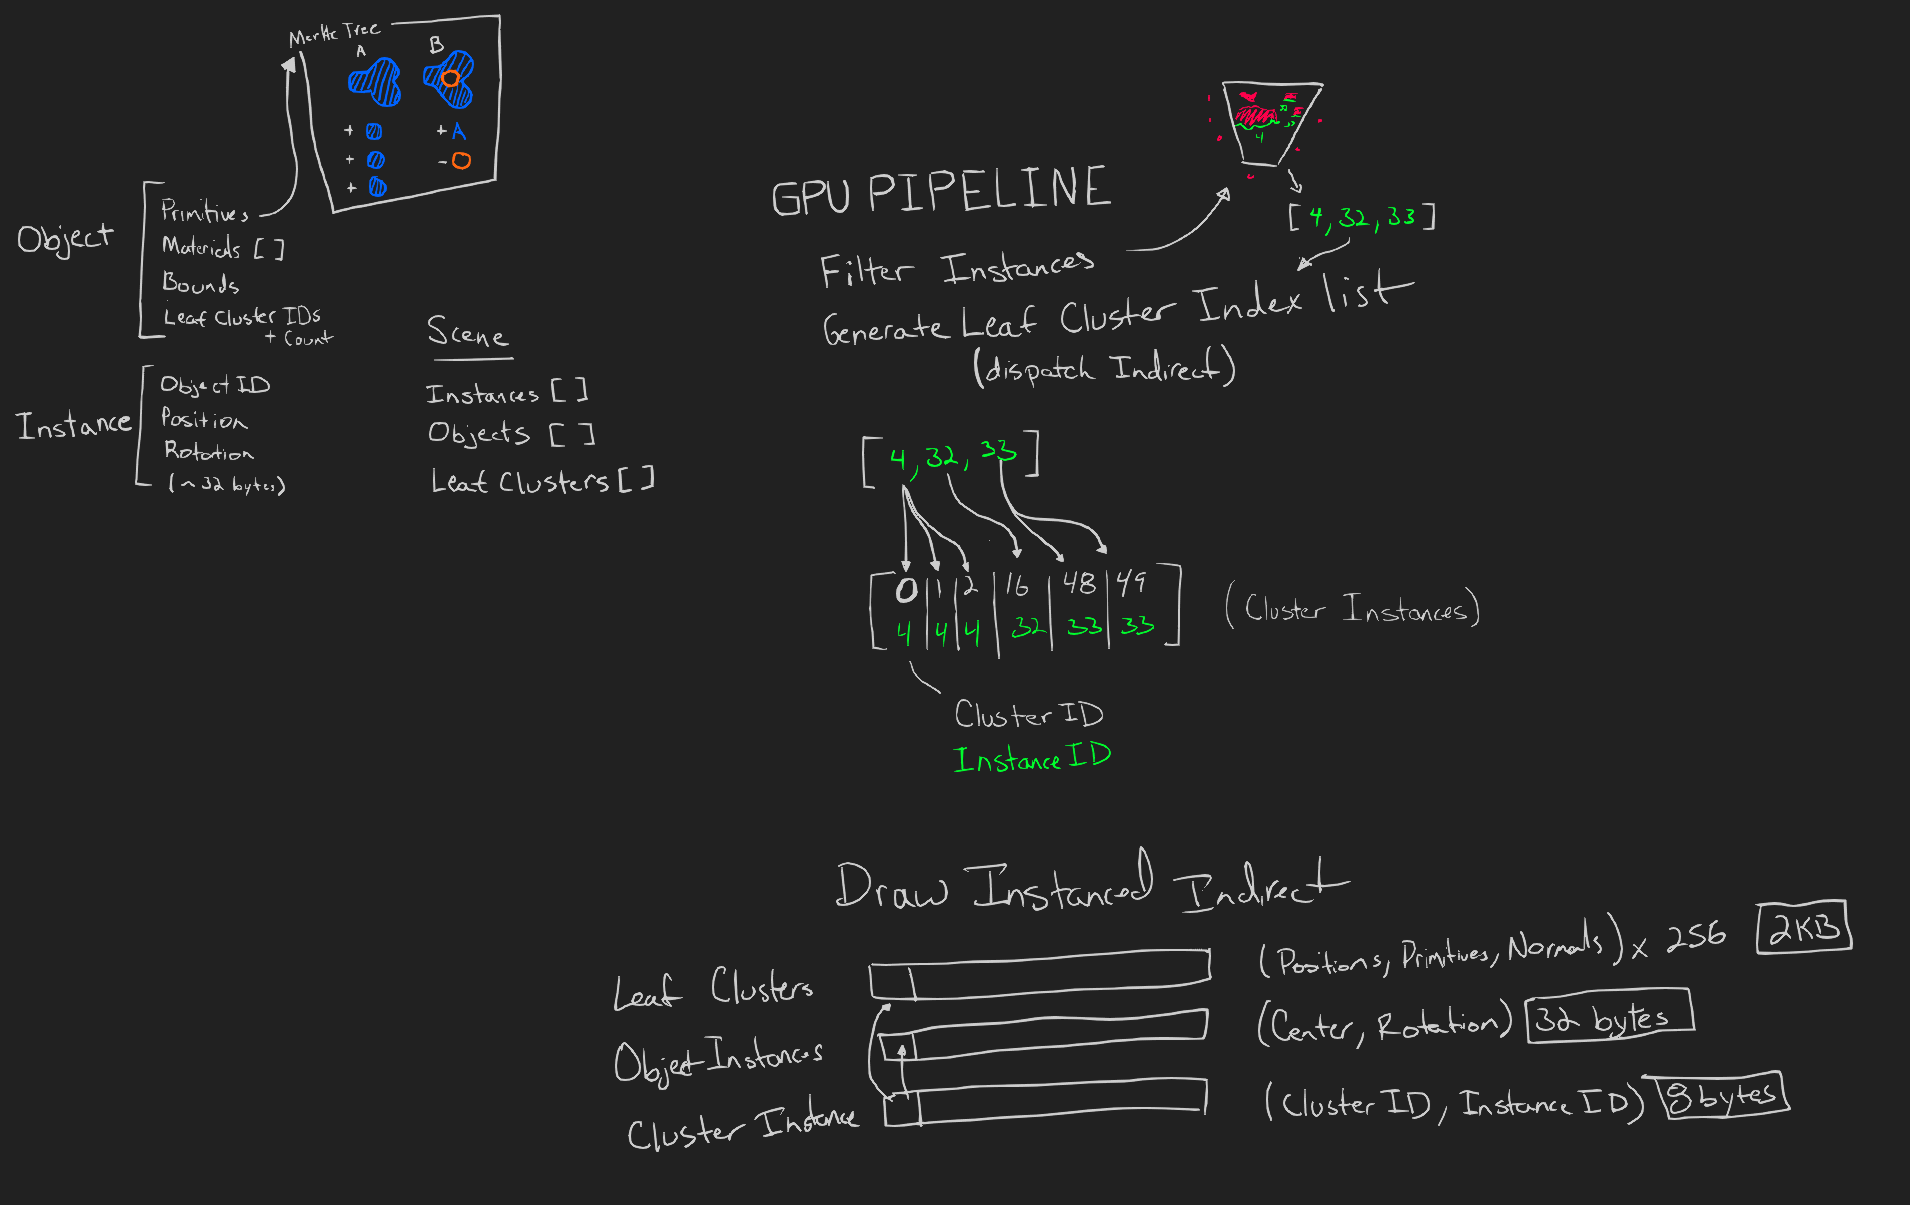 Merkle Tree
A B
+ + A
+ -
+
Object
Primitives
Materials [ ]
Bounds
Leaf Cluster IDs
+ Count
Instance
Object ID
Position
Rotation
(~32 bytes)
Scene
Instances [ ]
Objects [ ]
Leaf Clusters [ ]
4
[4, 32, 33]
GPU PIPELINE
Filter Instances
Generate Leaf Cluster Index list
(dispatch Indirect)
[4, 32, 33]
[0 | 1 | 2 | 16 | 48 | 49
4 | 4 | 4 | 32 | 33 | 33]
(Cluster Instances)
Cluster ID
Instance ID
Draw Instanced Indirect
Leaf Clusters (Positions, Primitives, Normals) x 256 2KB
Object Instances (Center, Rotation) 32 bytes
Cluster Instance (Cluster ID, Instance ID) 8 bytes